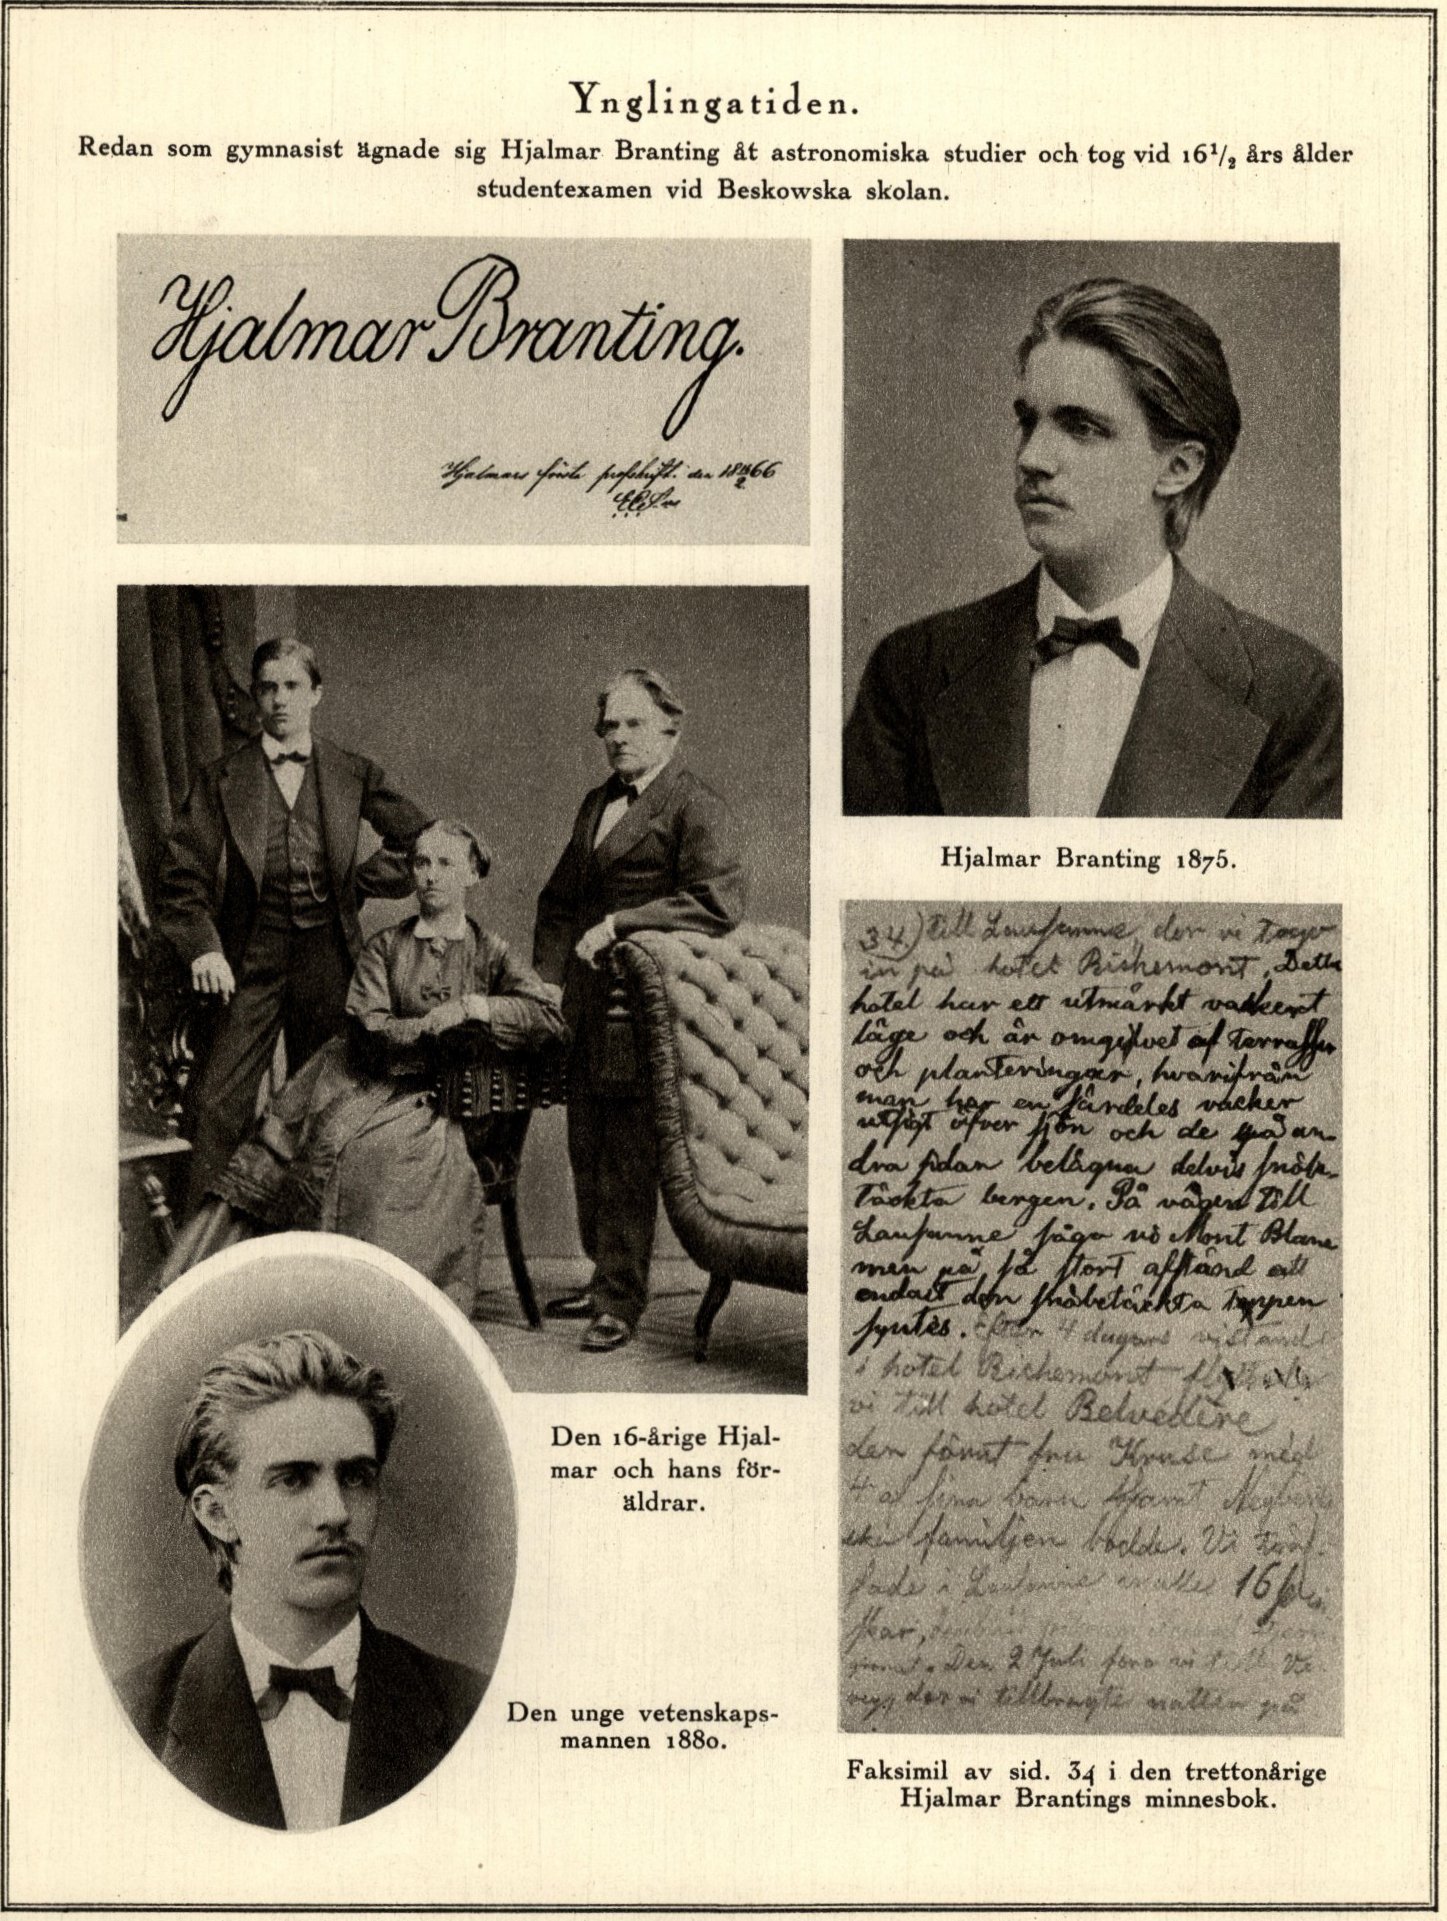 Ynglingatiden.
Redan som gymnasist ägnade sig Hjalmar Branting åt astronomiska studier och tog vid 16½ års ålder
studentexamen vid Beskowska skolan.
Hjalmar Branting.
Hjalmars första profskrift. den 18 66
Hjalmar Branting 1875.
34.) till Lausanne, der vi togo
in på hotel Richemont. Detta
hotel har ett utmärkt vackert
läge och är omgifvet af terrasser
och planteringar, hvarifrån
man har en särdeles vacker
utsigt öfver sjön och de på an-
dra sidan belägna delvis snöbe-
täckta bergen. På vägen till
Lausanne sågo vi Mont Blanc
men på så stort afstånd att
endast den snöbetäckta toppen
syntes. Efter 4 dagars vistande
i hotel Richemont
vi till hotel Belvedère
der förut fru Kruse med
4 af sina barn samt
ska familjen bodde. Vi
i Lausanne 16
Den 2 Juli foro vi till Ve-
vey, der vi tillbragte natten på
Den 16-årige Hjal-
mar och hans för-
äldrar.
Den unge vetenskaps-
mannen 1880.
Faksimil av sid. 34 i den trettonårige
Hjalmar Brantings minnesbok.